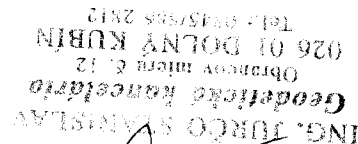 ING. JURČO STANISLAV
Geodetická kancelária
Obrancov mieru č. 12
026 01 DOLNÝ KUBÍN
Tel.: